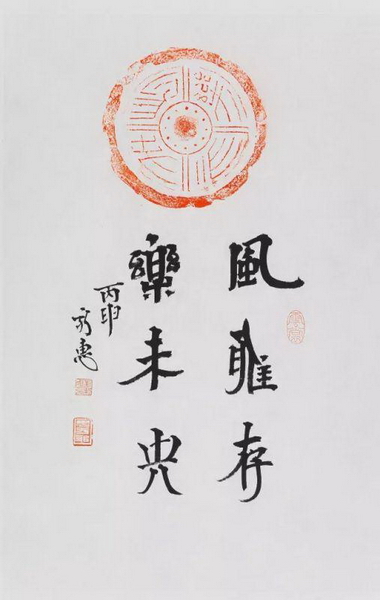 風雅存
樂未央
丙申
惠